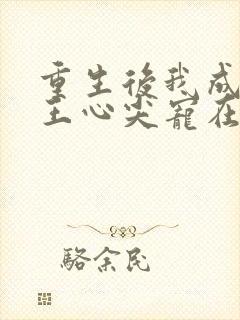 重生後我成
王心尖寵在
駱余民